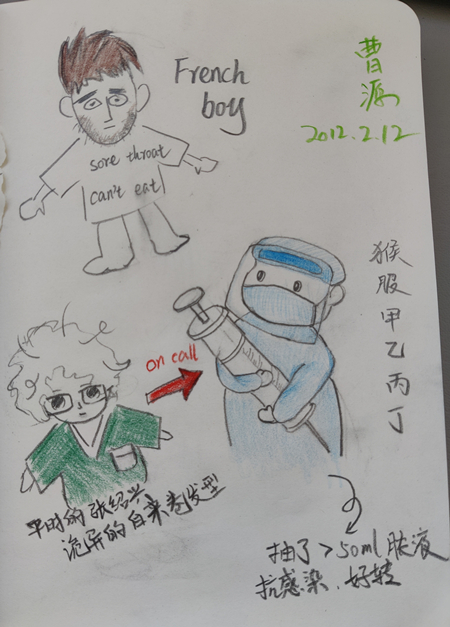 French
boy
sore throat
can't eat
曹源
2012.2.12
猴服甲乙丙丁
on call
平时的张绍兴
诡异的自来卷发型
抽了>50ml脓液
抗感染、好转